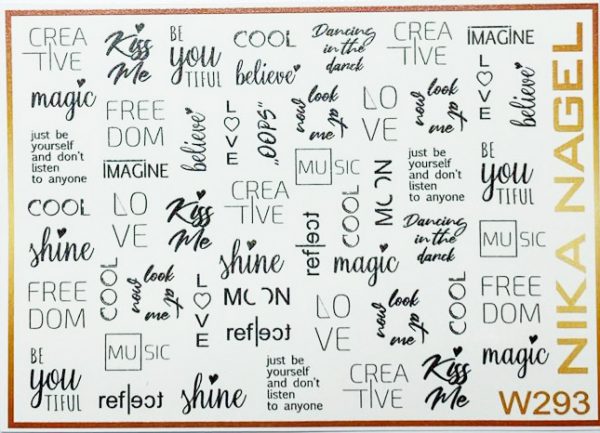 CREA
TIVE
Kiss
Me
BE
you
TIFUL
COOL
believe
Dancing
in the
darck
CREA
TIVE
IMAGINE
magic
FREE
DOM
believe
LOVE
„OOPS”
now look
at me
LO
VE
now look
at me
LOVE
believe
just be
yourself
and don't
listen
to anyone
IMAGINE
MUSIC
just be
yourself
and don't
listen
to anyone
BE
you
TIFUL
COOL
LO
VE
Kiss
Me
CREA
TIVE
reflect
COOL
MOON
Dancing
in the
darck
MUSIC
shine
shine
magic
FREE
DOM
COOL
now look
at me
LOVE
MOON
reflect
LO
VE
now look
at me
COOL
magic
BE
you
TIFUL
MUSIC
reflect
shine
just be
yourself
and don't
listen
to anyone
CREA
TIVE
Kiss
Me
NIKA NAGEL
W293